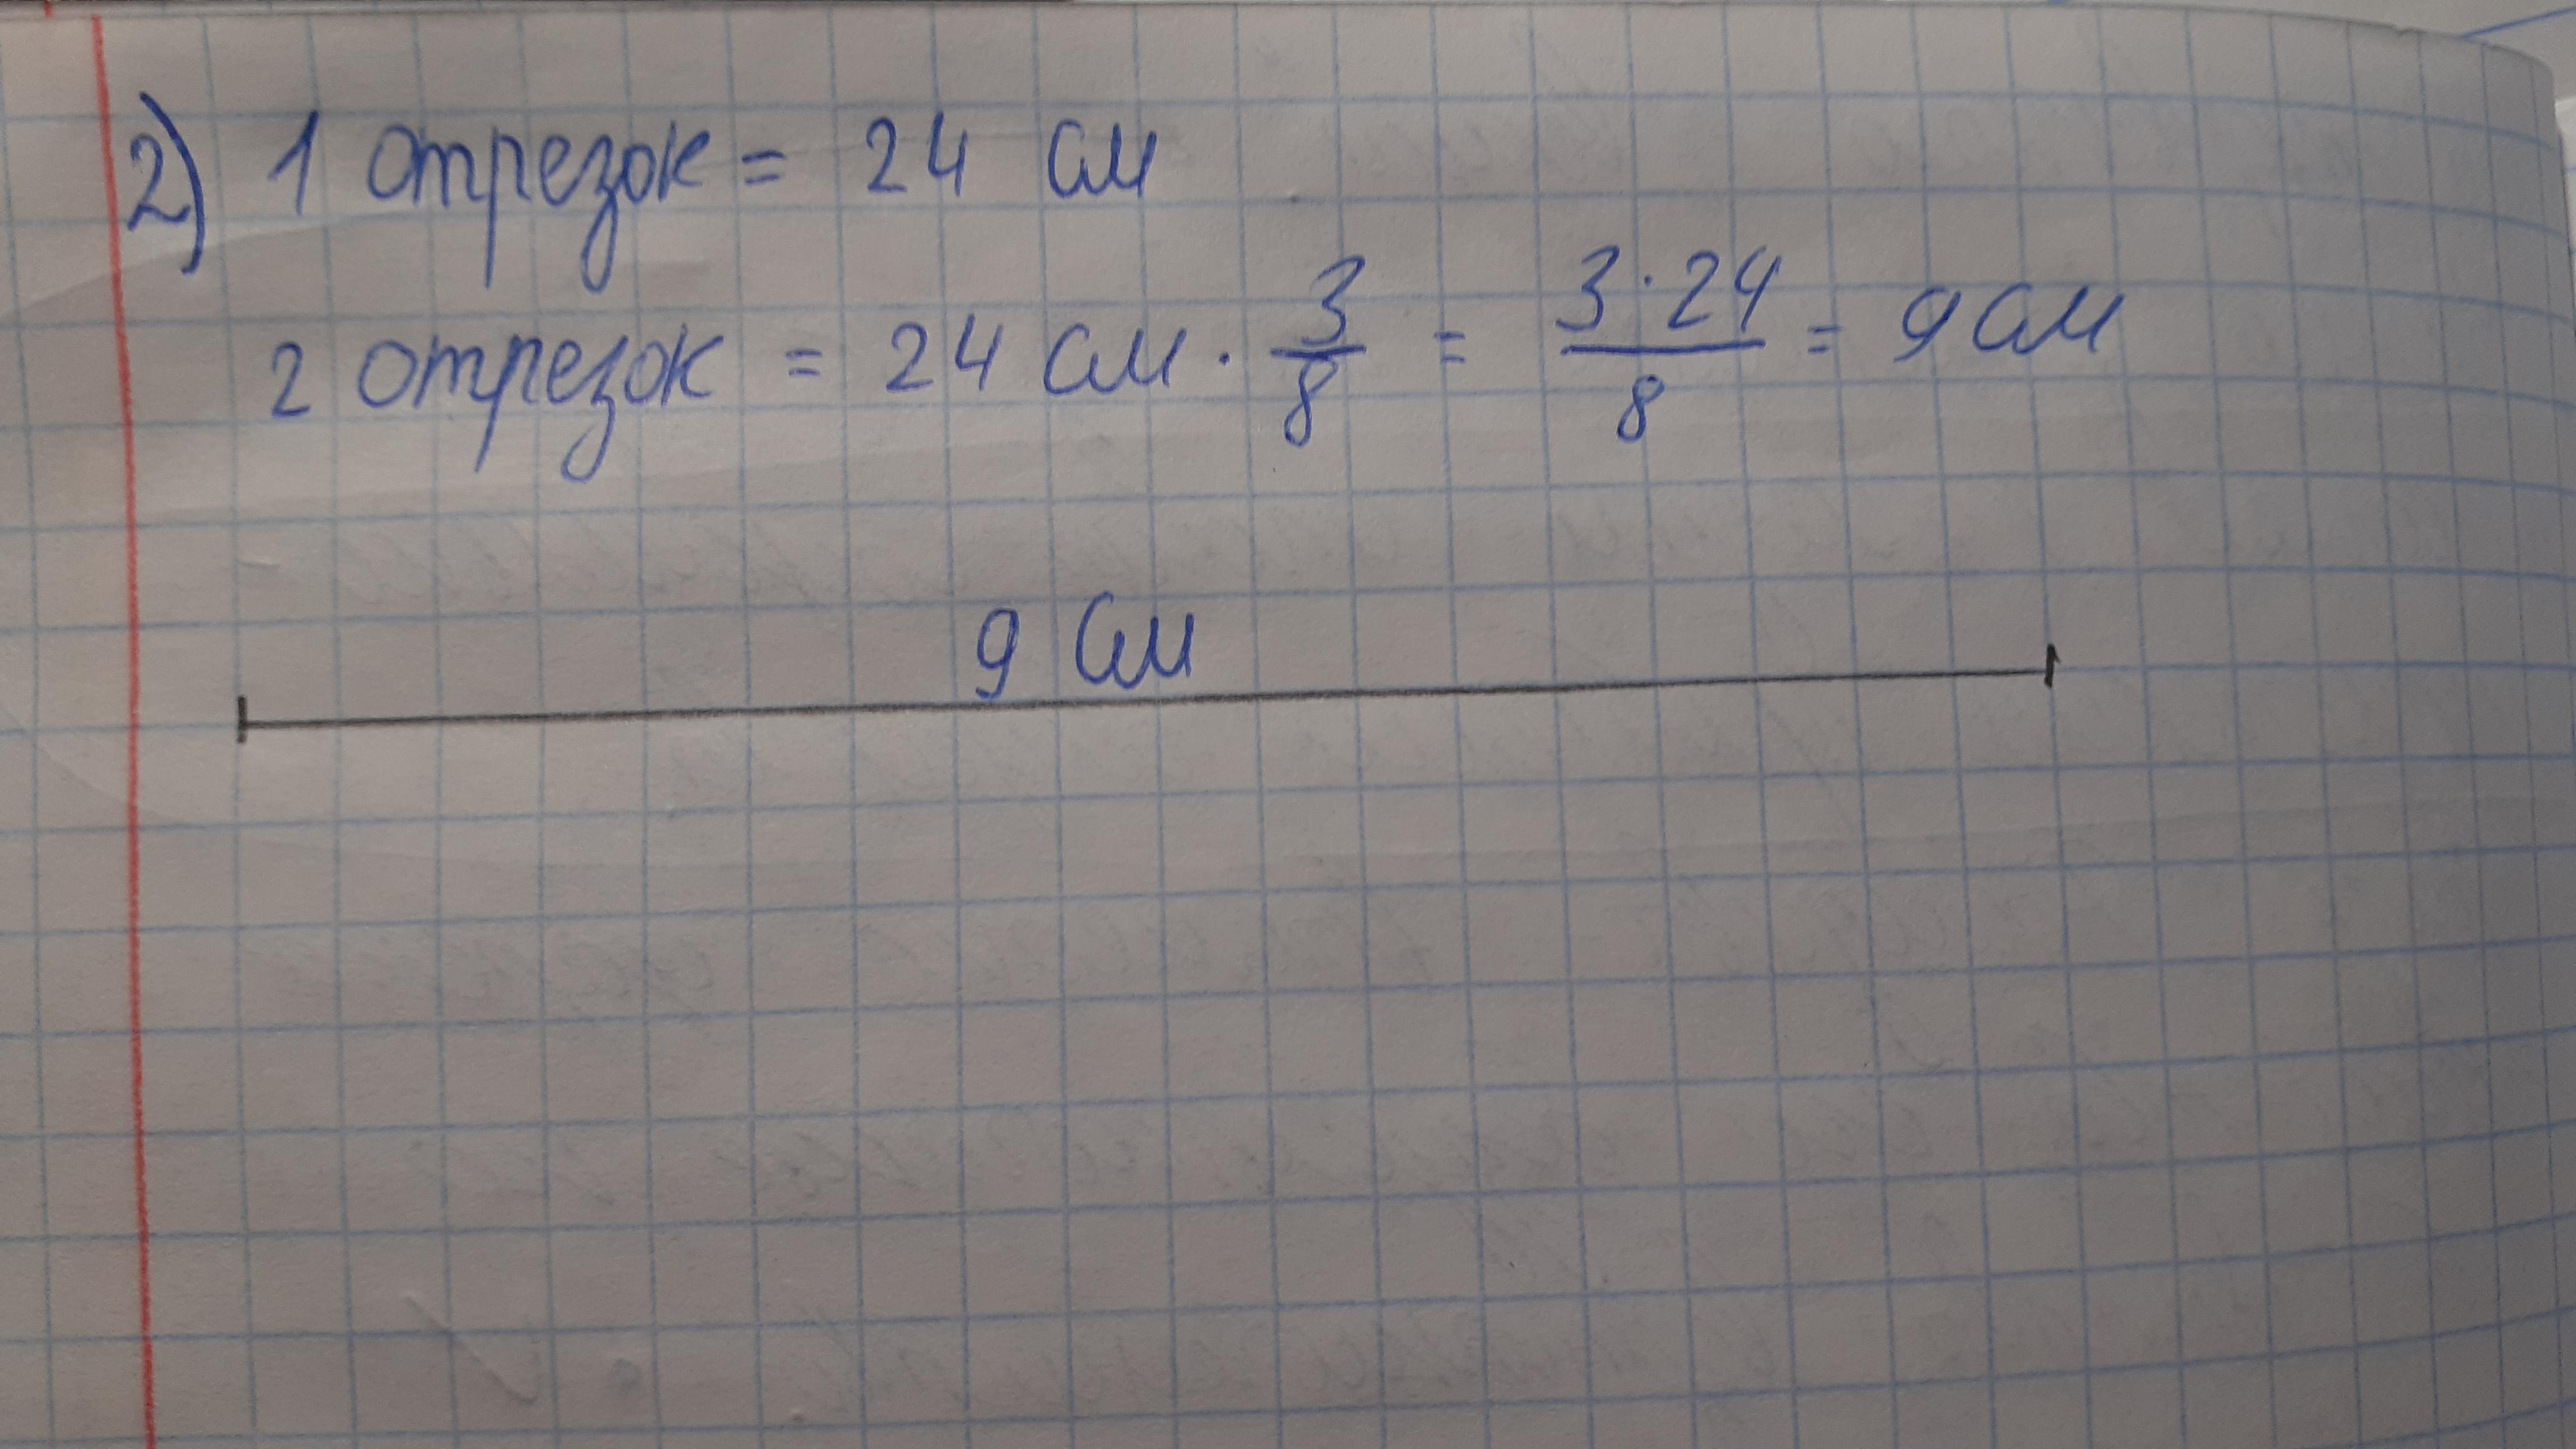 2) 1 отрезок = 24 см
2 отрезок = 24 см · 3/8 = 3·24/8 = 9 см
9 см